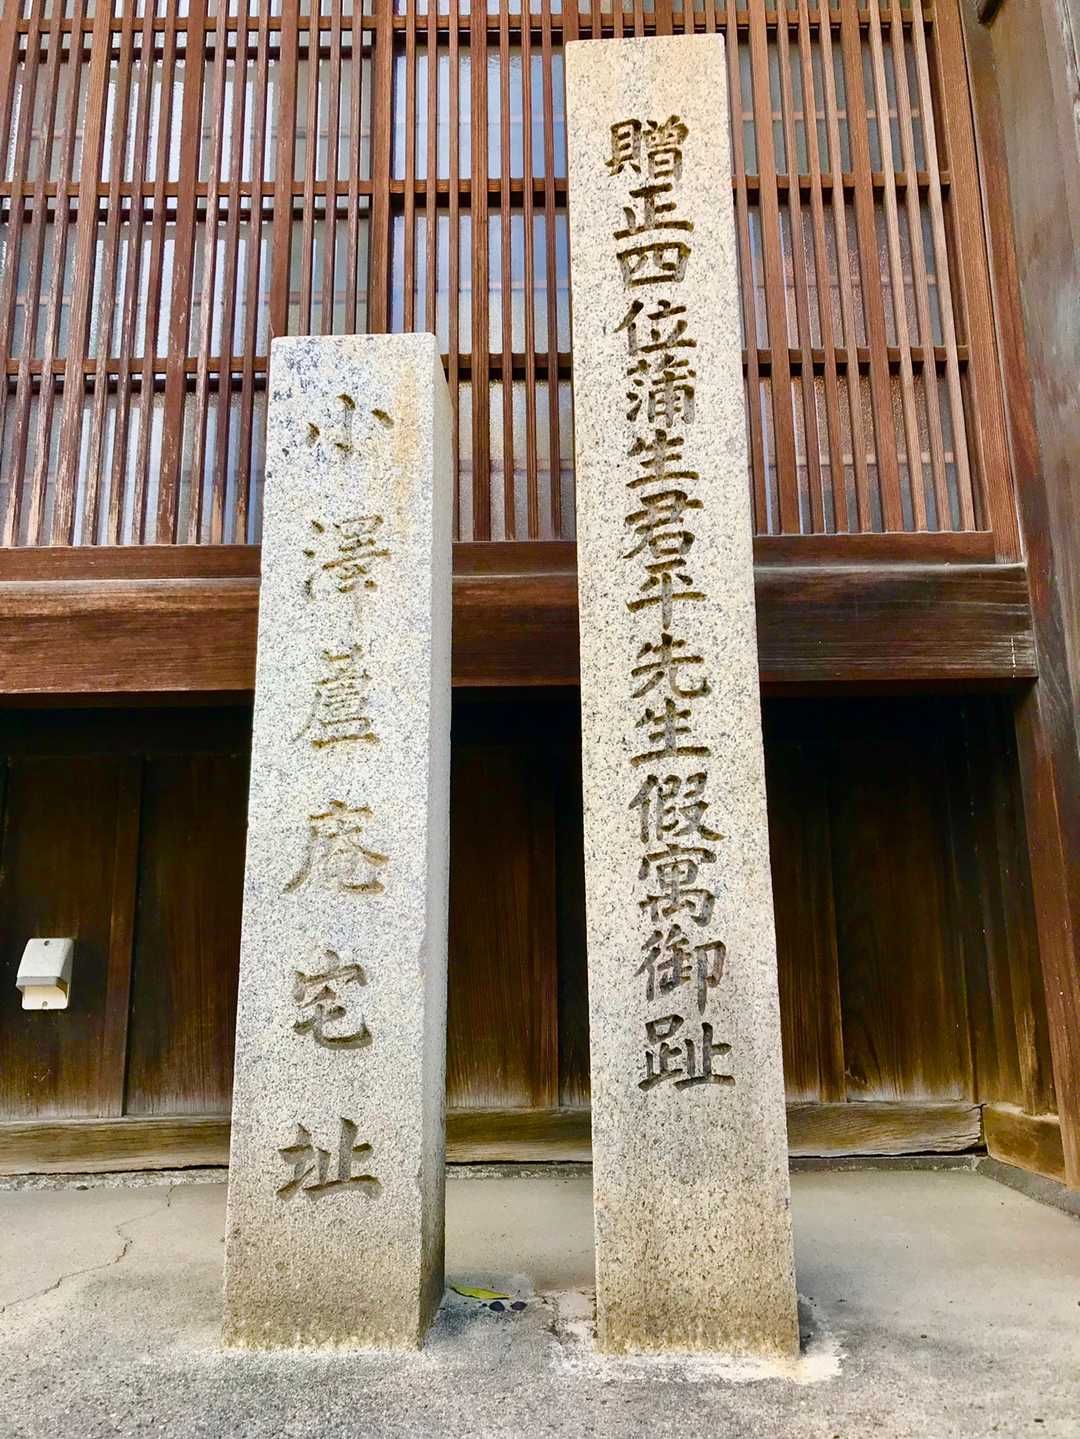 贈正四位蒲生君平先生假寓御趾
小澤蘆庵宅址